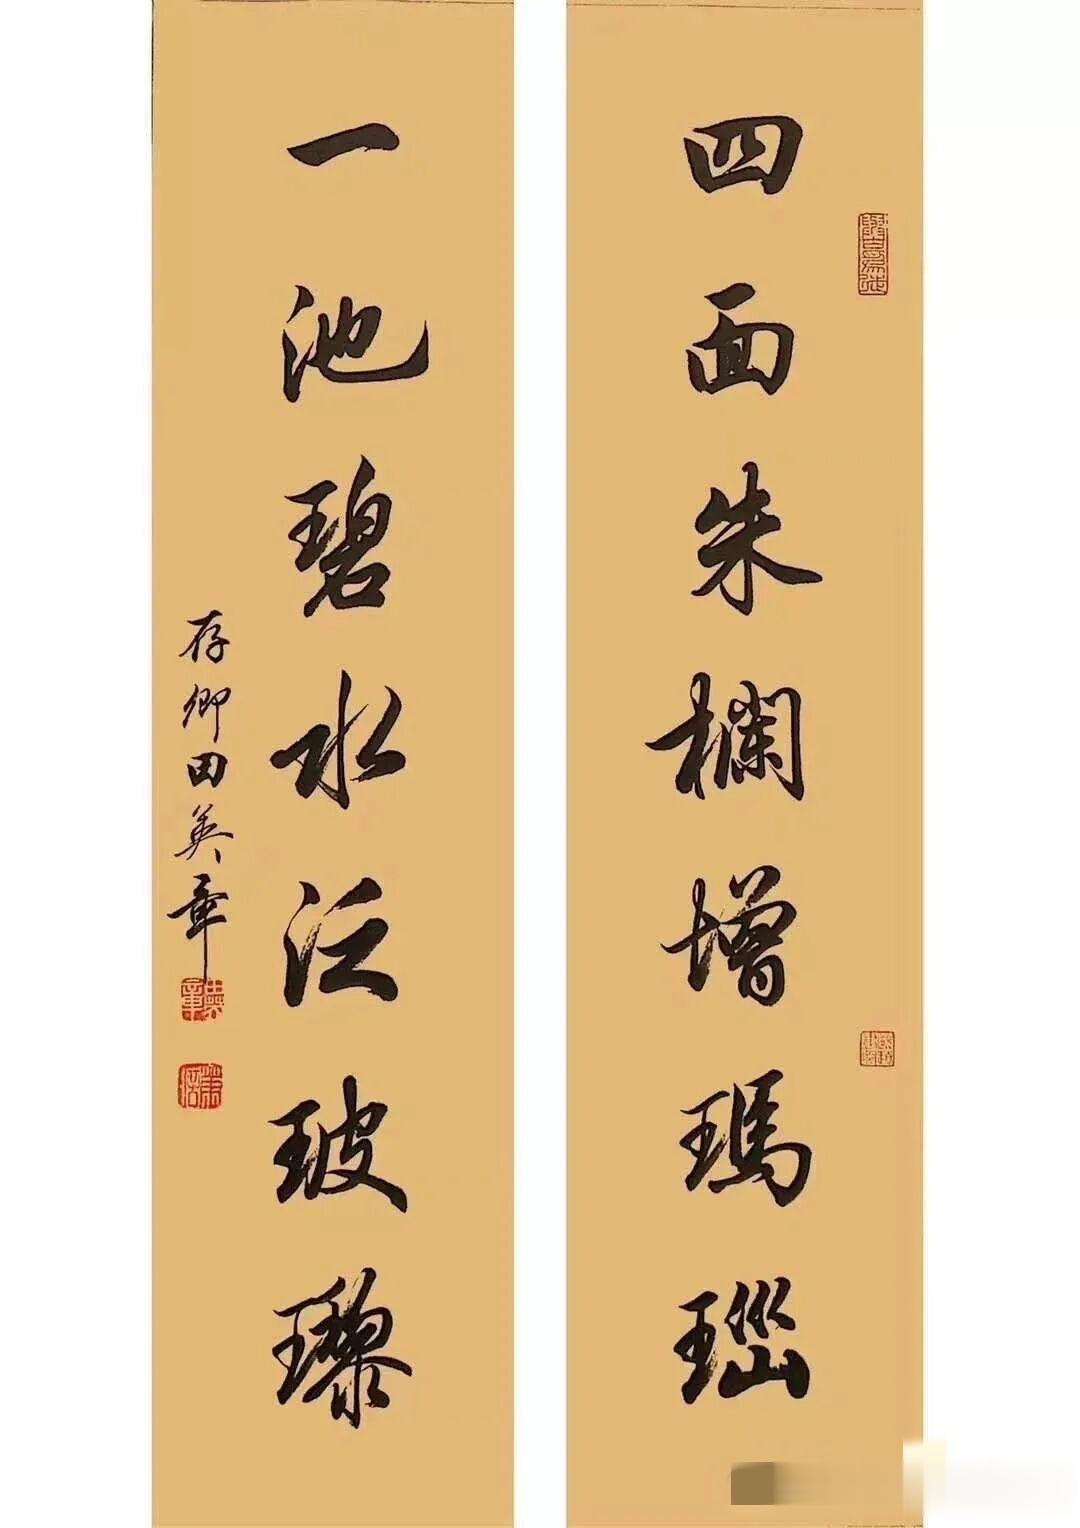 四面朱欄增瑪瑙
一池碧水泛玻瓈
存卿田英章